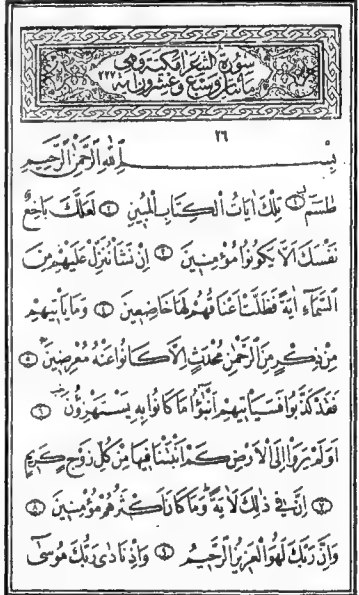 سورة الشعراء مكية وهي
مائتان وسبع وعشرون اية ٢٢٧
٢٦
بِسْمِ اللّٰهِ الرَّحْمٰنِ الرَّحِيمِ
طٰسٓمٓ ﴿١﴾ تِلْكَ اٰيَاتُ الْكِتَابِ الْمُبِينِ ﴿٢﴾ لَعَلَّكَ بَاخِعٌ
نَفْسَكَ اَلَّا يَكُونُوا مُؤْمِنِينَ ﴿٣﴾ اِنْ نَشَأْ نُنَزِّلْ عَلَيْهِمْ مِنَ
السَّمَٓاءِ اٰيَةً فَظَلَّتْ اَعْنَاقُهُمْ لَهَا خَاضِعِينَ ﴿٤﴾ وَمَا يَأْتِيهِمْ
مِنْ ذِكْرٍ مِنَ الرَّحْمٰنِ مُحْدَثٍ اِلَّا كَانُوا عَنْهُ مُعْرِضِينَ ﴿٥﴾
فَقَدْ كَذَّبُوا فَسَيَأْتِيهِمْ اَنْبٰٓؤُا مَا كَانُوا بِهِ يَسْتَهْزِؤُنَ ﴿٦﴾
اَوَلَمْ يَرَوْا اِلَى الْاَرْضِ كَمْ اَنْبَتْنَا فِيهَا مِنْ كُلِّ زَوْجٍ كَرِيمٍ
﴿٧﴾ اِنَّ فِي ذٰلِكَ لَاٰيَةً وَمَا كَانَ اَكْثَرُهُمْ مُؤْمِنِينَ ﴿٨﴾
وَاِنَّ رَبَّكَ لَهُوَ الْعَزِيزُ الرَّحِيمُ ﴿٩﴾ وَاِذْ نَادٰى رَبُّكَ مُوسٰٓى